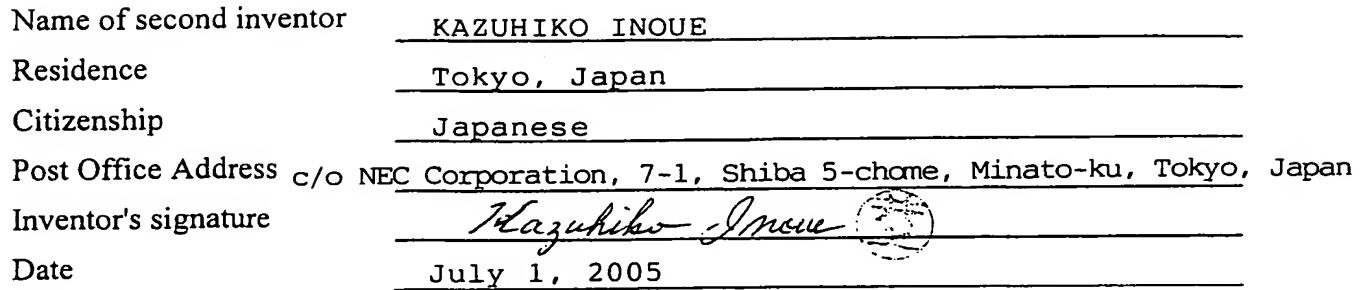 Name of second inventor KAZUHIKO INOUE
Residence Tokyo, Japan
Citizenship Japanese
Post Office Address c/o NEC Corporation, 7-1, Shiba 5-chome, Minato-ku, Tokyo, Japan
Inventor's signature Kazuhiko Inoue
Date July 1, 2005